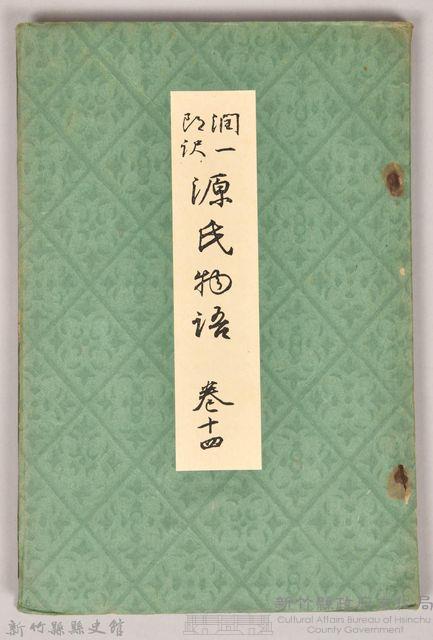 潤一
郎訳
源氏物語 巻十四
新竹縣縣史館
新竹縣政府文化局
Cultural Affairs Bureau of Hsinchu
County Government